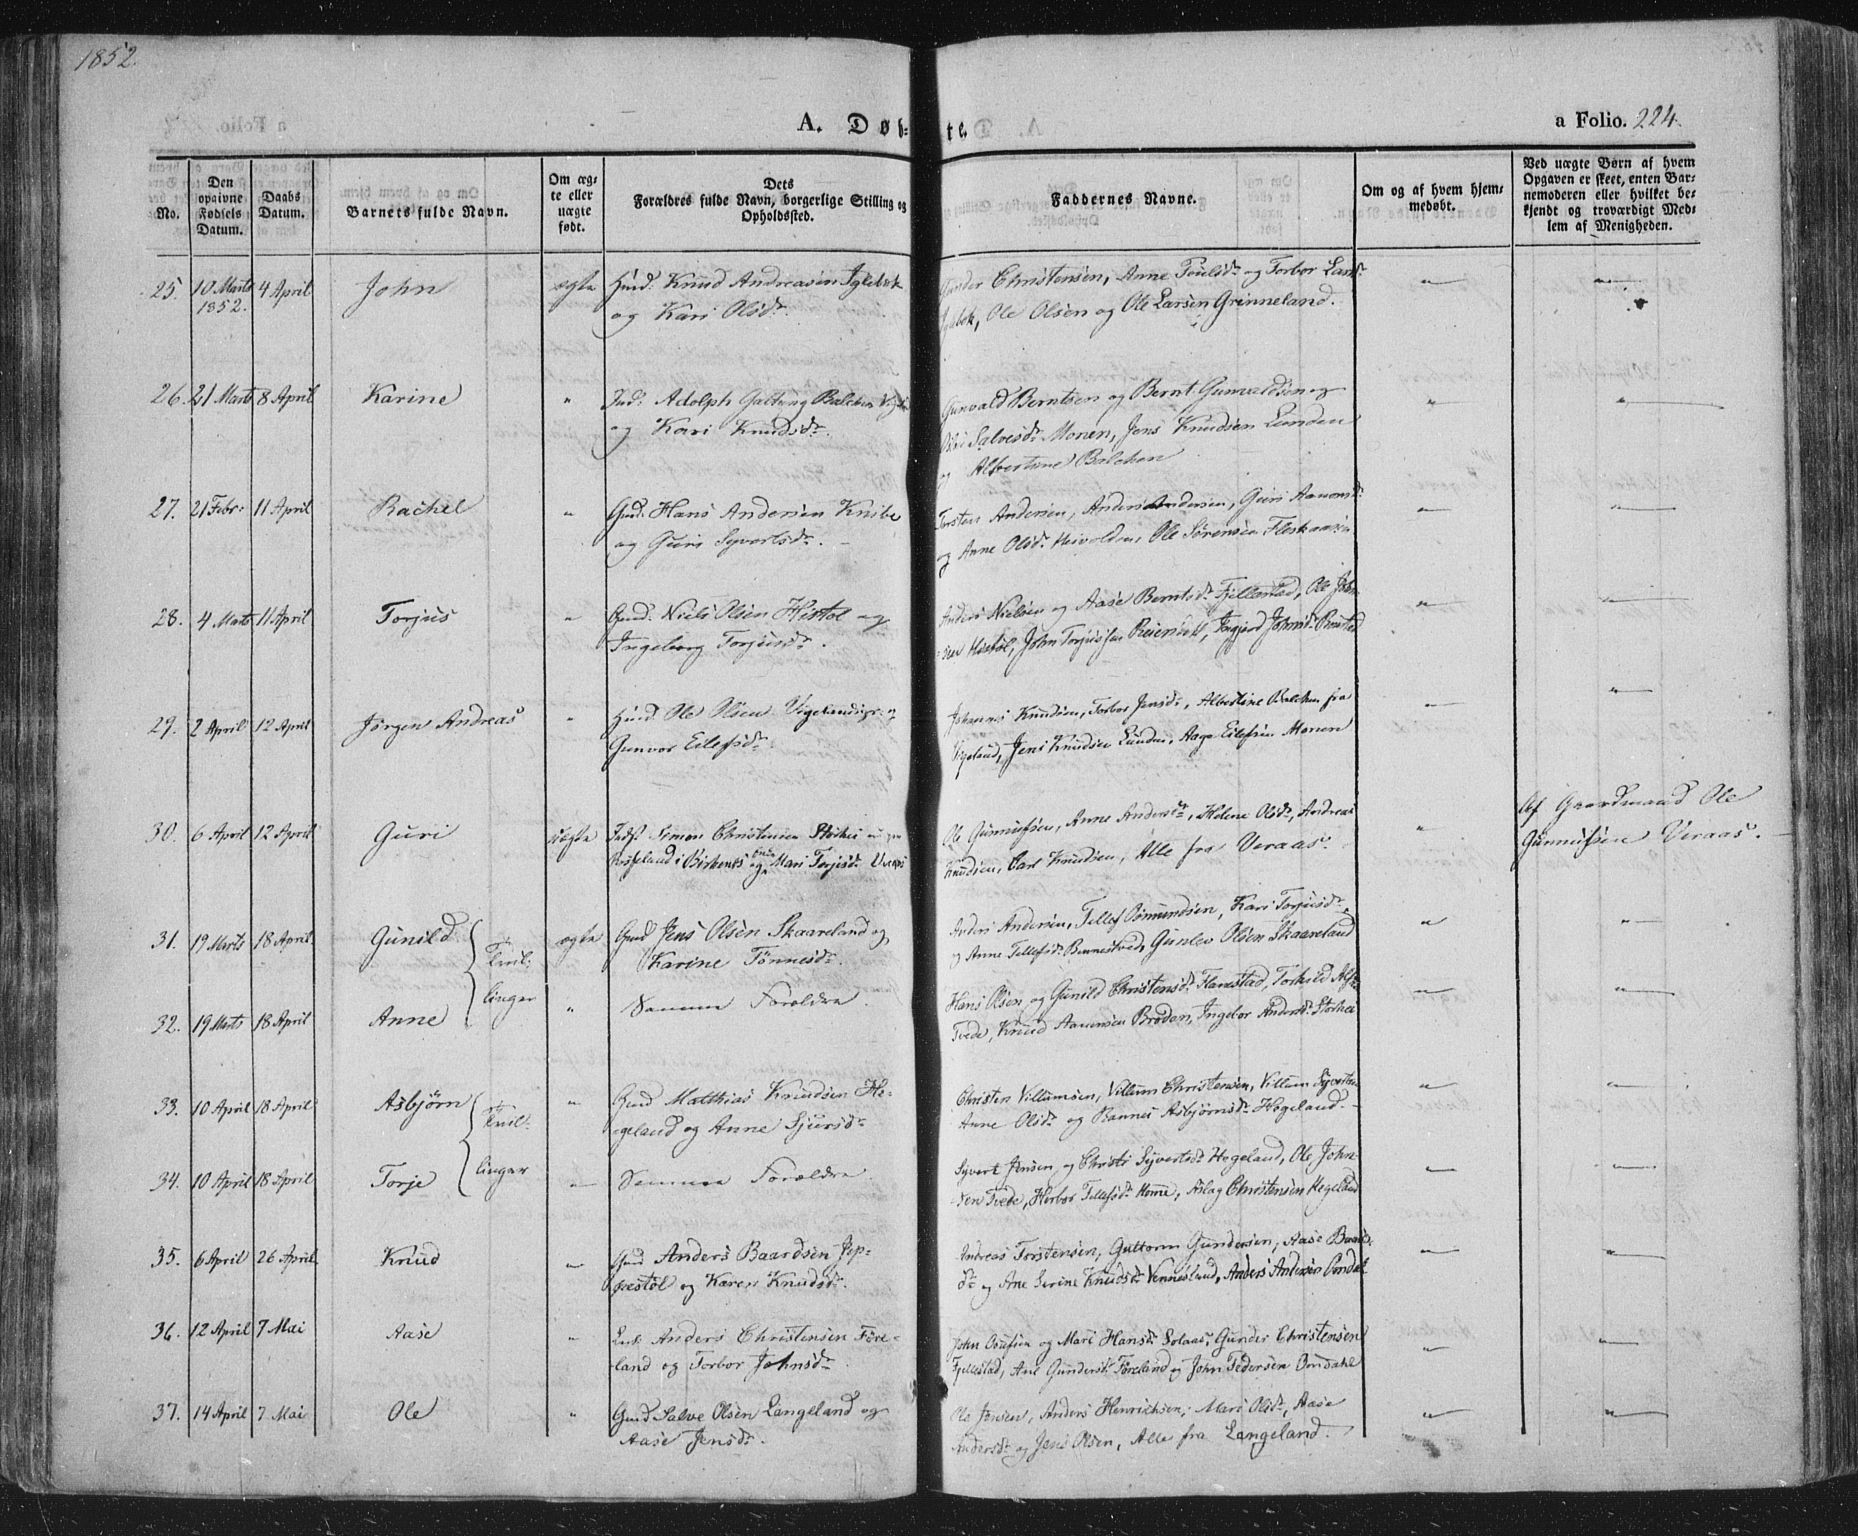 1852.
A. Døb-
te.
a Folio. 224.
No.
Den opgivne Fødsels Datum.
Daabs Datum.
Barnets fulde Navn.
Om ægte eller uægte født.
Dets Forældres fulde Navn, borgerlige Stilling og Opholdssted.
Faddernes Navne.
Om og af hvem hjemmedøbt.
Ved uægte Børn af hvem Opgaven er skeet, enten Barnemoderen eller hvilket bekjendt og troværdigt Medlem af Menigheden.
25. 10 Marts 1852. 4 April John ægte Huusd. Knud Andreasen Iglebæk
og Kari Olsdr.
Gunder Christensen, Anne Poulsdr og Torbor Larsdr
Ole Olsen og Ole Larsen Grinneland.
26. 21 Marts 8 April Karine " Adolph Galtung Balchen
og Kari Knudsdr.
Gunvald Berntsen og Bernt Gunvaldsen og
Salvesdr Monen, Jens Knudsen Lunden
og Albertine Balchen
27. 21 Febr: 11 April Rachel " Gmd. Hans Andersen Knibe
og Guri Syvertsdr.
Torsten Andersen, Anders Andersen, Guri Aanonsdr
og Anne Olsdr Heivolden, Ole Sørensen Fleskaasen
28. 4 Marts 11 April Torjus " Gmd. Niels Olsen Histøl og
Ingeborg Torjusdr.
Anders Nielsen og Aase Berntsdr Fjellestad, Ole John-
sen Histøl, John Torjussen Reiersdal, Ingjerd Johnsdr
29. 2 April 12 April Jørgen Andreas " Huusd. Ole Olsen Vigelandsgr. og
Gunvor Eilefsdr.
Johannes Knudsen, Torbor Jensdr, Albertine Balchen fra
Vigeland, Jens Knudsen Lunden, Aage Eilefsen Monen
30. 6 April 12 April Guri uægte Simon Christensen
i Birkenes og Mari Torjusdr Veraas
Ole Gunnufsen, Anne Andersdr, Helene Olsdr, Andreas
Knudsen, Carl Knudsen, Alle fra Veraas.
Af Gaardmand Ole
Gunnufsen Veraas.
31. 19 Marts 18 April. Gunild Tvil- ægte Gmd Jens Olsen Skaareland og
Karine Tønnesdr.
Anders Andersen, Tellef Osmundsen, Kari Torjusdr
og Anne Tellefsdr Bennestvedt, Gunlev Olsen Skaareland
32. 19 Marts 18 April Anne linger " Samme Forældre.
Hans Olsen og Gunild Christensdr Flanestad, Torkild
Tvede, Knud Aanensen Braaden, Ingebor Andersdr Storhei
33. 10 April 18 April Asbjørn Tvil- " Gmd Matthias Knudsen He-
geland og Anne Sjursdr
Christen Villumsen, Villum Christensen, Villum Syvertsen
Anne Olsdr og Rannei Asbjørnsdr Høgeland.
34. 10 April 18 April Torje linger — Samme Forældre.
Syvert Jensen og Christi Syvertsdr Hegeland, Ole John-
sen Tvede, Herbor Tellefsdr Homme, Aslag Christensen Hegeland
35. 6 April 26 April Knud " Gmd Anders Baardsen Jep-
pestøl og Karen Knudsdr.
Andreas Torstensen, Guttorm Gundersen, Aase Baards-
dr og Ane Serine Knudsdr Vennesland, Anders Andersen Ondal
36. 12 April 7 Mai Aase " Anders Christensen Føre-
land og Torbor Johnsdr.
John Osufsen og Mari Hansdr Solaas, Gunder Christensen
Fjellestad, Ane Gundersdr Føreland og John Pedersen Omdahl
37. 14 April 7 Mai Ole " Gmd Salve Olsen Langeland og
Aase Jensdr.
Ole Jensen, Anders Henrichsen, Mari Olsdr, Aase
Andersdr og Jens Olsen, Alle fra Langeland.